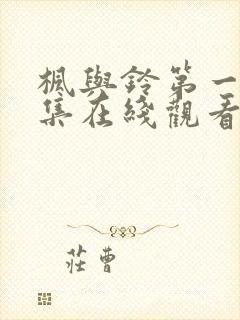 楓與鈴第一
集在綫觀看
莊曹